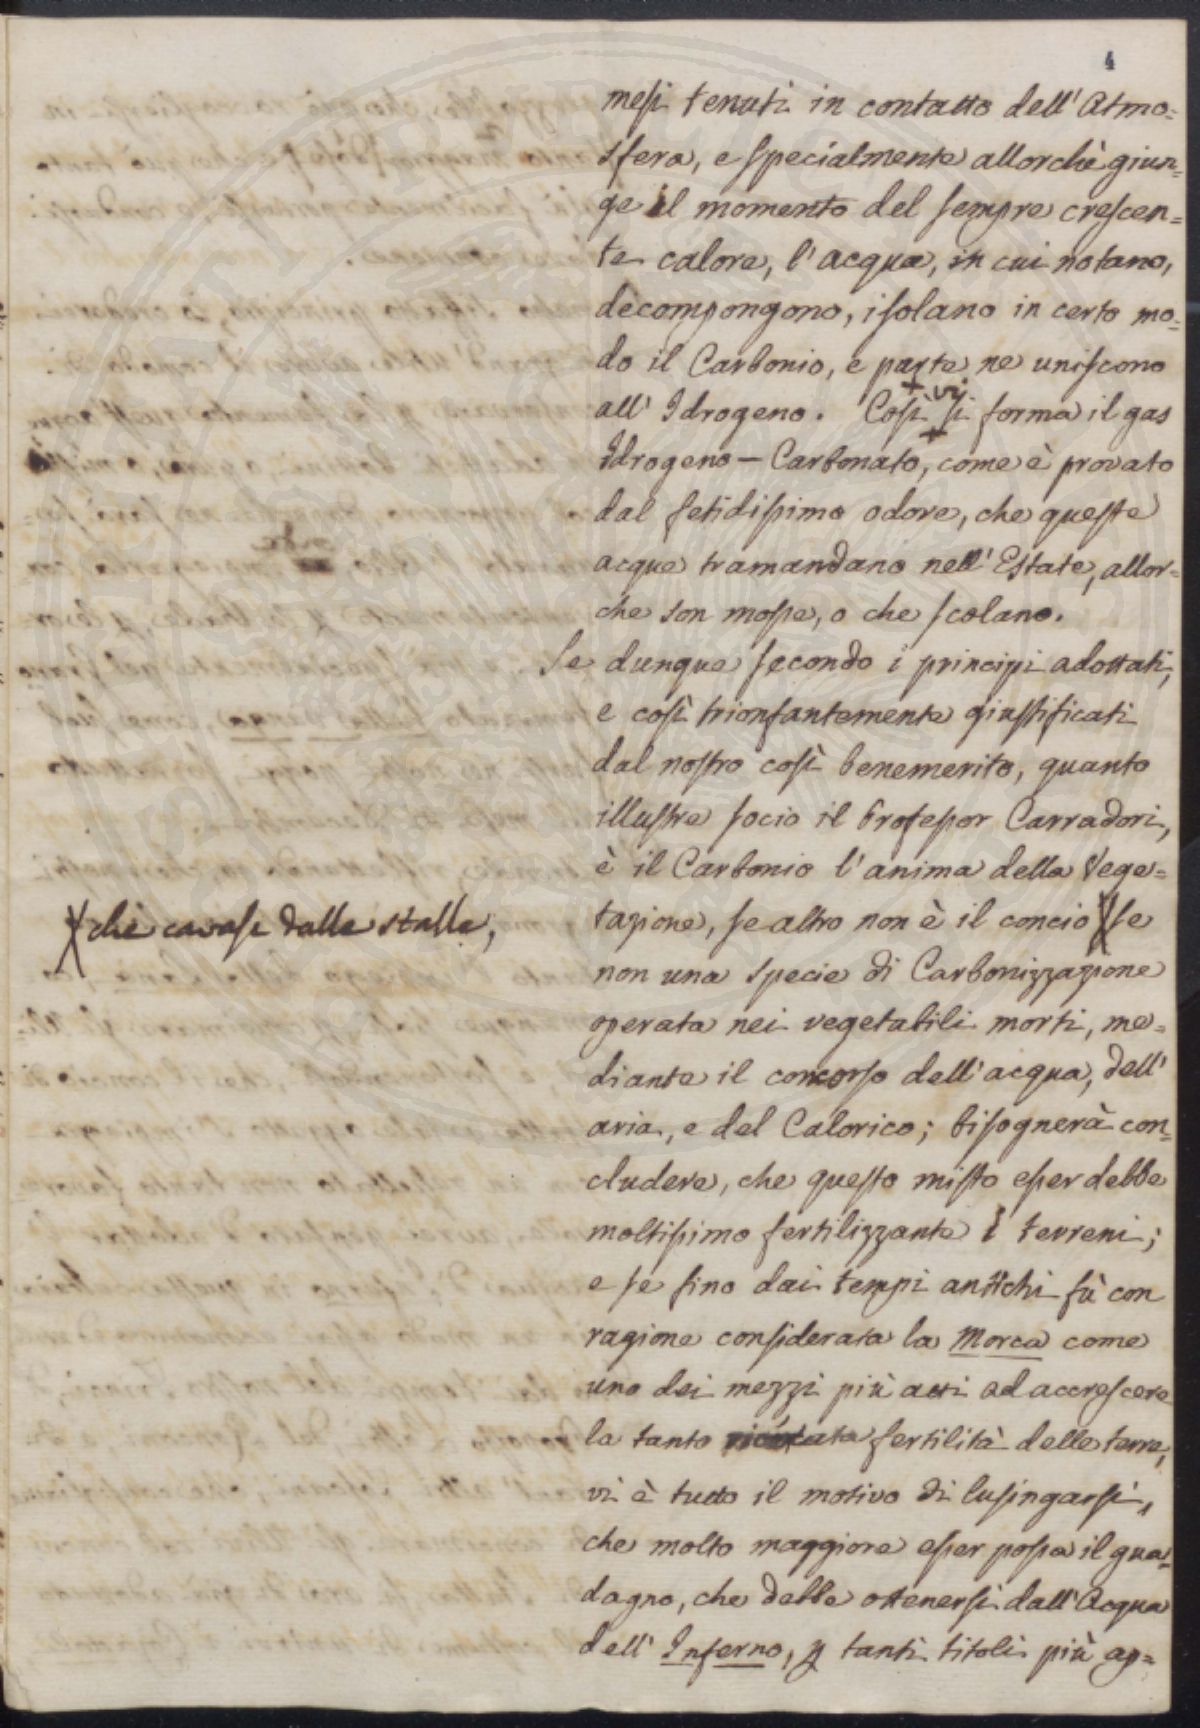 4
mesi tenuti in contatto dell'Atmo=
sfera, e specialmente allorchè giun=
ge il momento del sempre crescen=
te calore, l'acqua, in cui notano,
decompongono, isolano in certo mo=
do il Carbonio, e parte ne uniscono
all'Idrogeno. Così + vi + si forma il gas
Idrogeno – Carbonato, come è provato
dal fetidissimo odore, che queste
acque tramandano nell'Estate, allor=
che son mosse, o che scolano.
Se dunque secondo i principi adottati,
e così trionfantemente giustificati
dal nostro così benemerito, quanto
illustre socio il Professor Carradori,
è il Carbonio l'anima della Vege=
X che cavasi dalle stalle,
tazione, se altro non è il concio X se
non una specie di Carbonizzazione
operata nei vegetabili morti, me=
diante il concorso dell'acqua, dell'
aria, e del Calorico; bisognerà con=
cludere, che questo misto esser debbe
moltissimo fertilizzante i terreni;
e se fino dai tempi antichi fù con
ragione considerata la Morca come
uno dei mezzi più atti ad accrescere
la tanto fertilità delle terre,
vi è tutto il motivo di lusingarsi,
che molto maggiore esser possa il gua=
dagno, che debbe ottenersi dall'Acqua
dell'Inferno, p tanti titoli più ap=